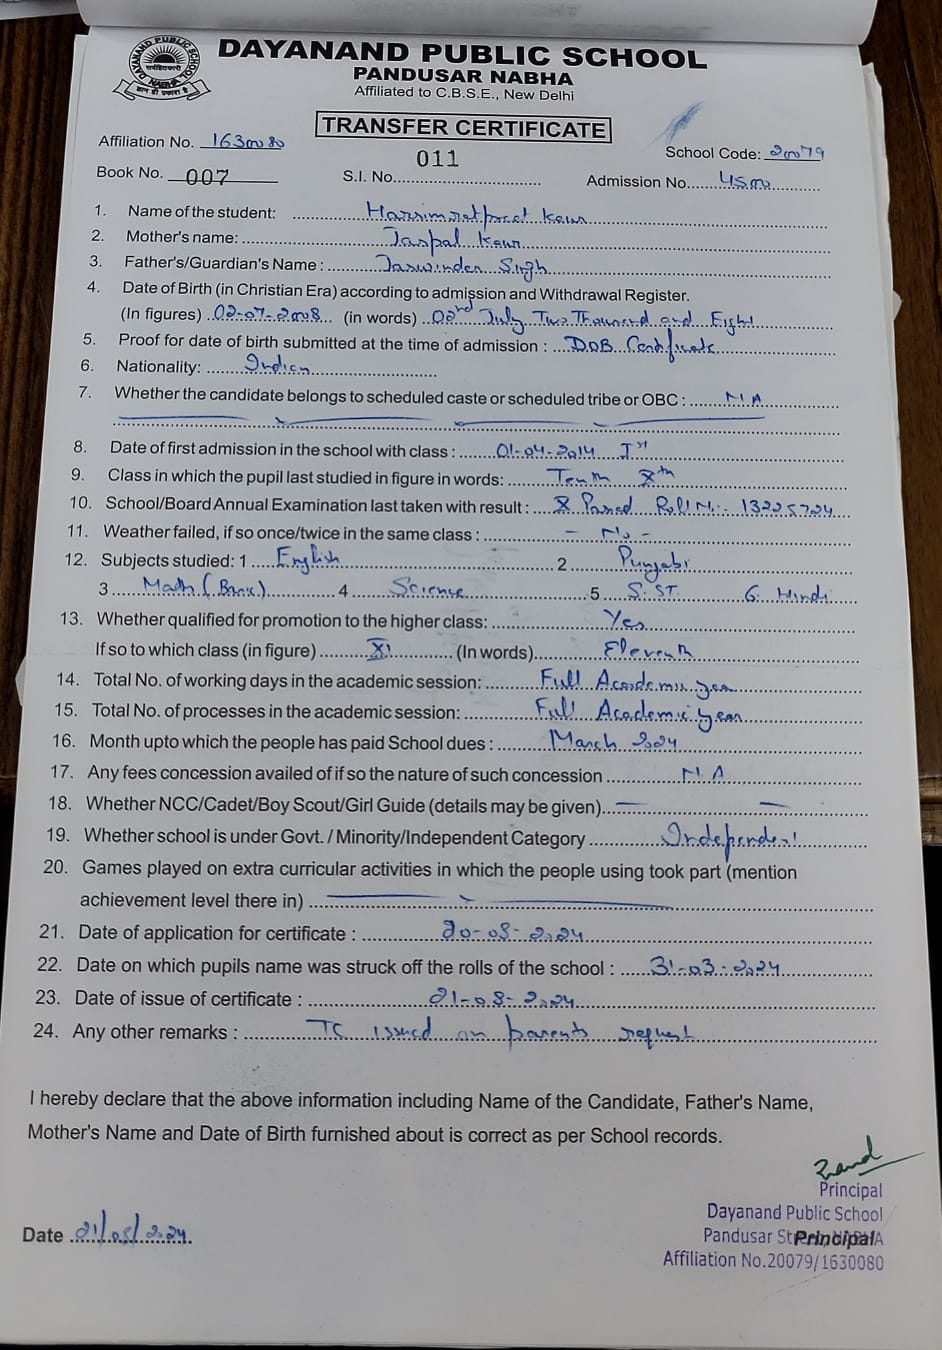 DAYANAND PUBLIC SCHOOL
PANDUSAR NABHA
Affiliated to C.B.S.E., New Delhi
TRANSFER CERTIFICATE
Affiliation No. 1630080 School Code: 20079
Book No. 007 S.I. No. 011 Admission No. 4500
1. Name of the student: Harsimratpreet Kaur
2. Mother's name: Jaspal Kaur
3. Father's/Guardian's Name : Jaswinder Singh
4. Date of Birth (in Christian Era) according to admission and Withdrawal Register.
(In figures) 02-07-2008 (in words) 02nd July Two Thousand and Eight
5. Proof for date of birth submitted at the time of admission : DOB Certificate
6. Nationality: Indian
7. Whether the candidate belongs to scheduled caste or scheduled tribe or OBC : N A
8. Date of first admission in the school with class : 01-04-2014 Ist
9. Class in which the pupil last studied in figure in words: Tenth Xth
10. School/Board Annual Examination last taken with result : X Passed Roll No:- 13225724
11. Weather failed, if so once/twice in the same class : - No -
12. Subjects studied: 1 English 2 Punjabi
3 Math (Basic) 4 Science 5 S.ST 6. Hindi
13. Whether qualified for promotion to the higher class: Yes
If so to which class (in figure) XI (In words) Eleventh
14. Total No. of working days in the academic session: Full Academic year
15. Total No. of processes in the academic session: Full Academic year
16. Month upto which the people has paid School dues : March 2024
17. Any fees concession availed of if so the nature of such concession N A
18. Whether NCC/Cadet/Boy Scout/Girl Guide (details may be given)
19. Whether school is under Govt. / Minority/Independent Category Independent
20. Games played on extra curricular activities in which the people using took part (mention
achievement level there in)
21. Date of application for certificate :
22. Date on which pupils name was struck off the rolls of the school : 31-03-2024
23. Date of issue of certificate :
24. Any other remarks : TC issued on parents request
I hereby declare that the above information including Name of the Candidate, Father's Name,
Mother's Name and Date of Birth furnished about is correct as per School records.
Principal
Dayanand Public School
Date Pandusar Principal
Affiliation No.20079/1630080